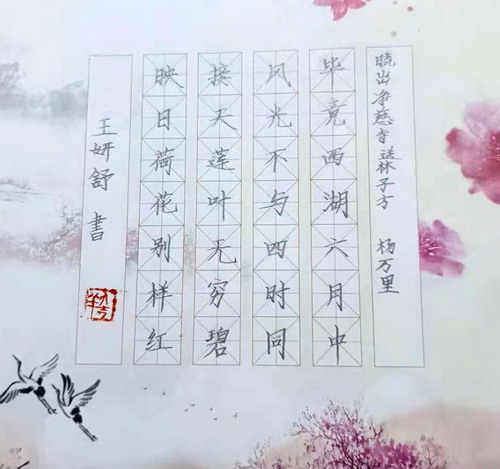 晓出净慈寺送林子方 杨万里
毕竟西湖六月中
风光不与四时同
接天莲叶无穷碧
映日荷花别样红
王妍舒 书